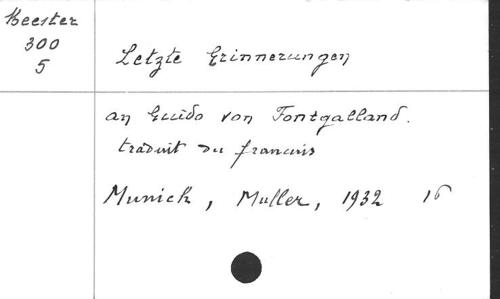 Heester
300
5
Letzte Erinnerungen
an Guido von Fontgalland.
traduit du francais
Munich, Muller, 1932 16